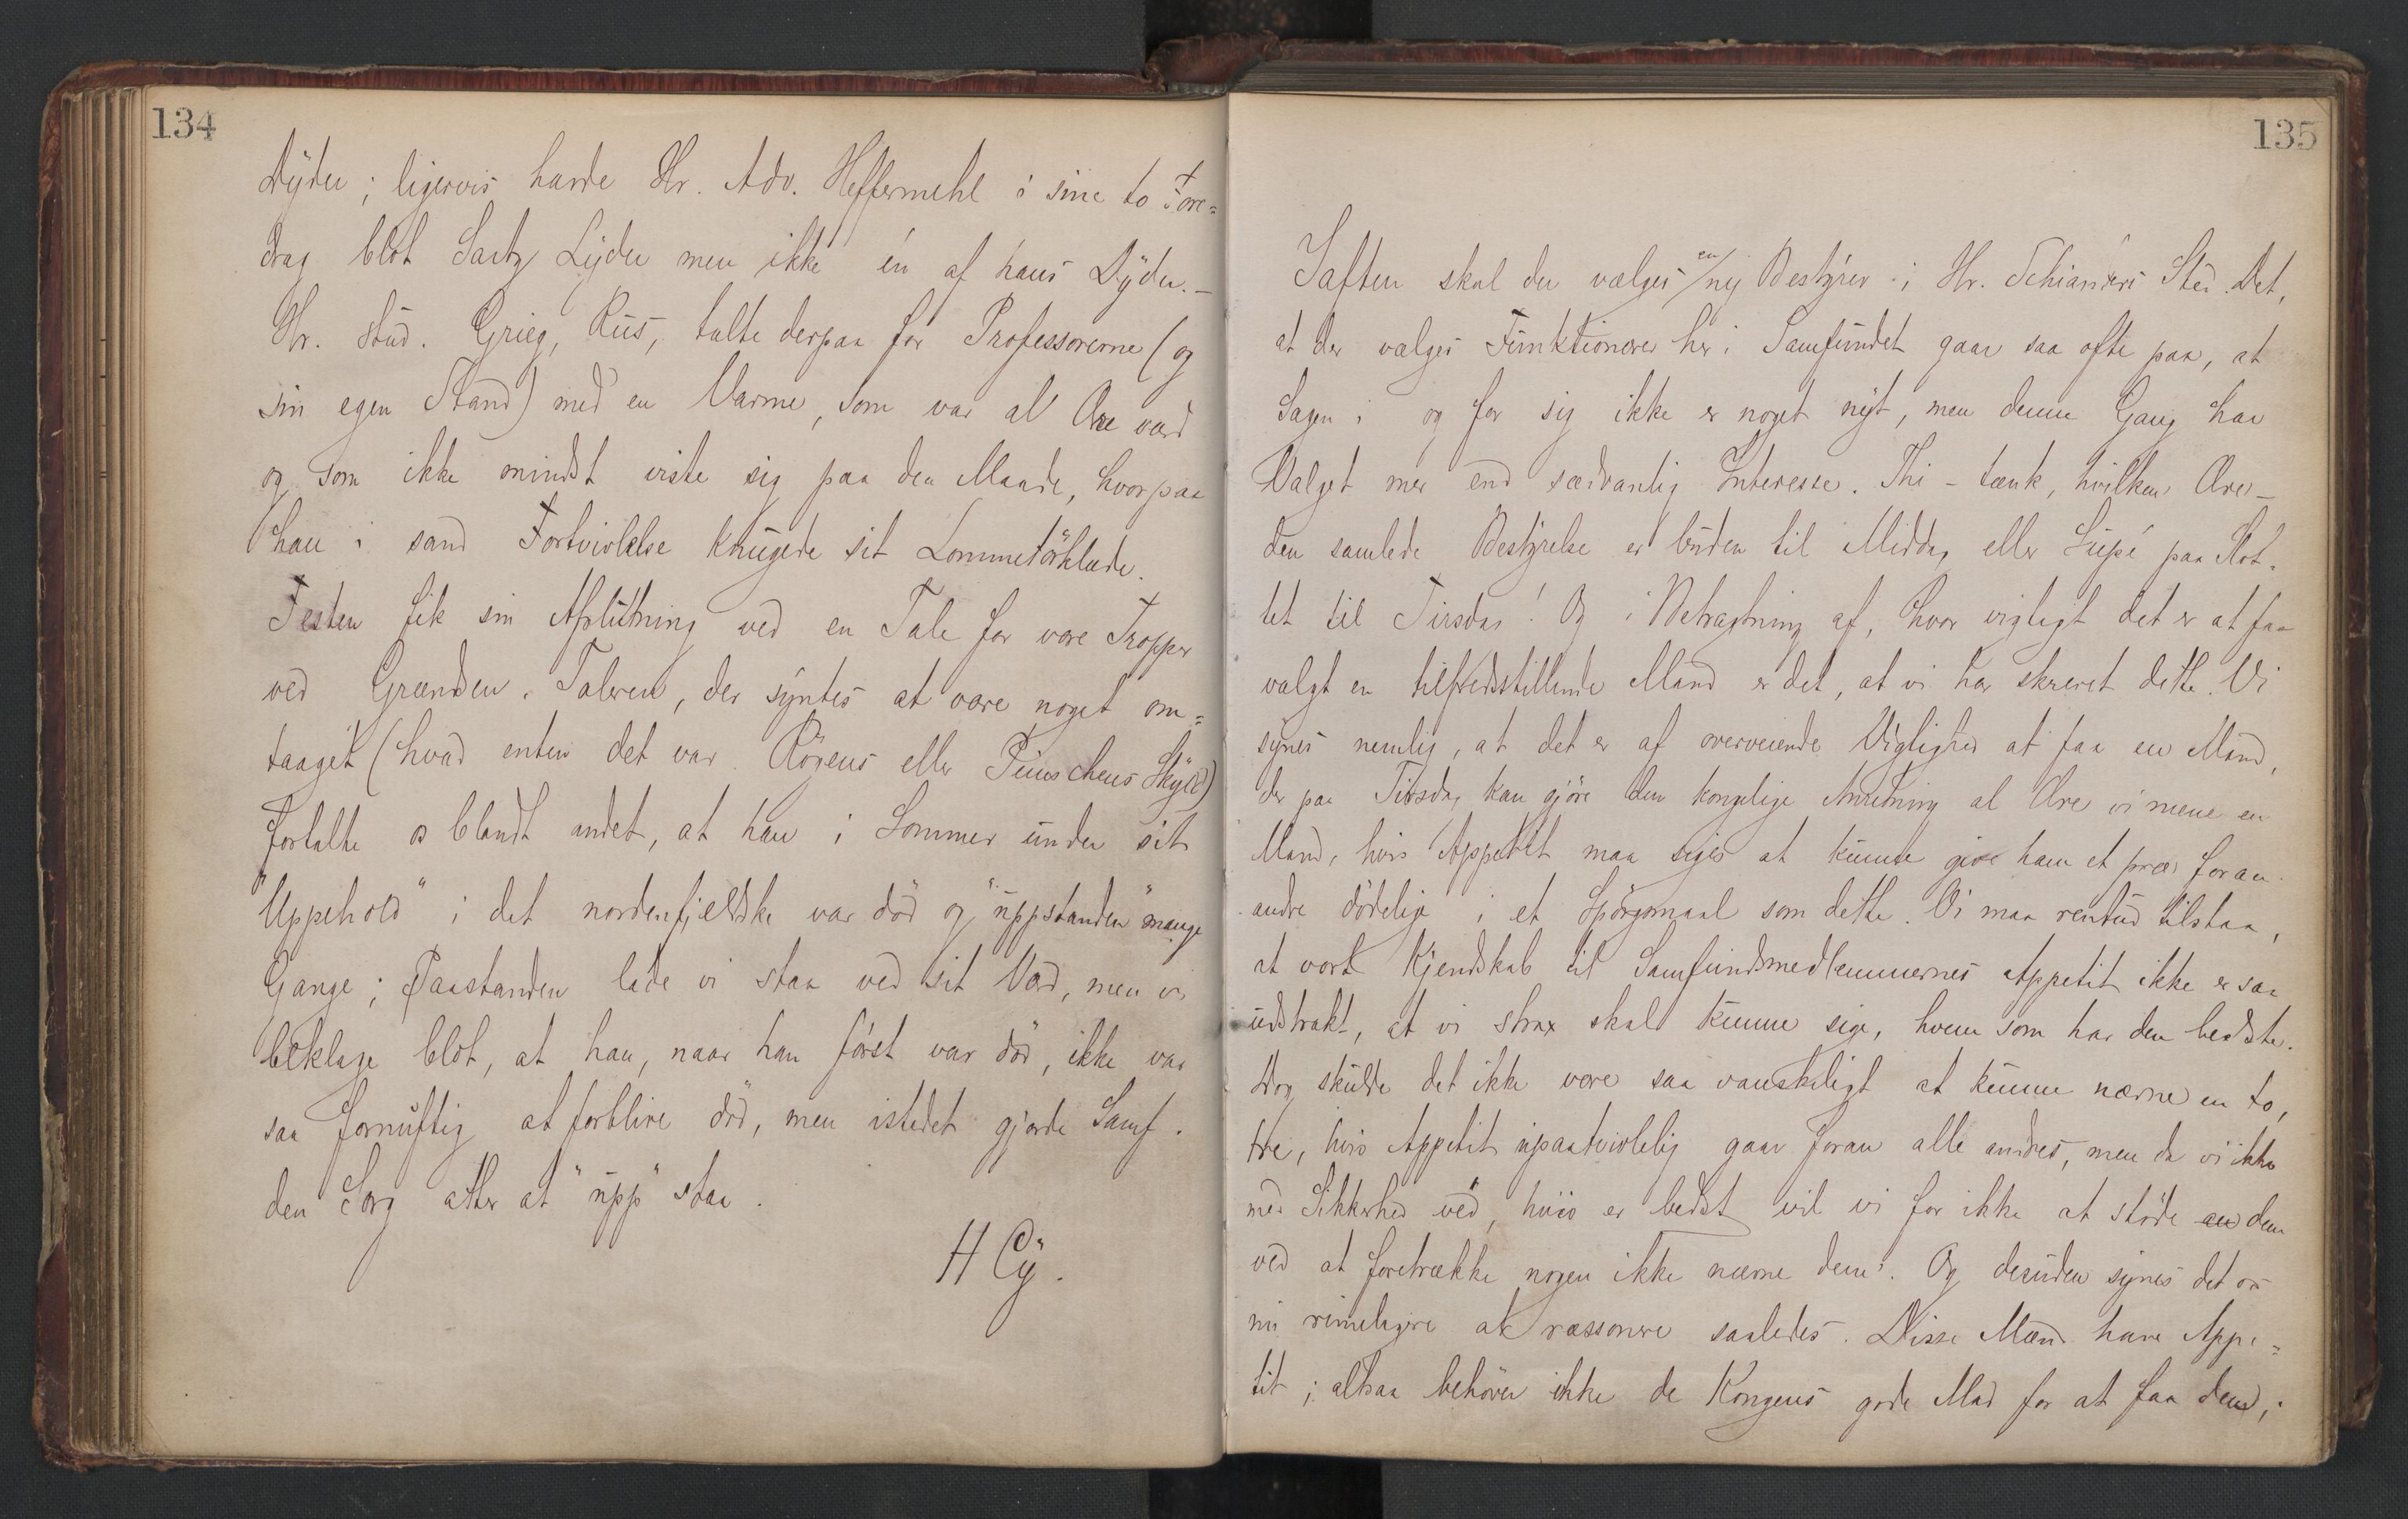 134
Dyder; ligervis havde Hr. Adv. Heffermehl i sine to Fore=
drag blot Sartz Lyder men ikke én af hans Dyder.—
Hr. stud. Grieg, Rus, talte derpaa for Professorerne (og
sin egen Stand) med en Varme, som var al Ære værd
og som ikke mindst viste sig paa den Maade, hvorpaa
han i sand Fortvivlelse knugede sit Lommetörklæde.
Festen fik sin Afslutning ved en Tale for vore Tropper
ved Grændsen. Taleren, der syntes at være noget om=
taaget (hvad enten det var Rögens eller Punschens Skyld)
fortalte os blandt andet, at han i Sommer under sit
"Uppehold" i det nordenfjeldske var död og "uppstanden" mange
Gange; Paastanden lade vi staa ved sit Værd, men vi
beklage blot, at han, naar han först var död, ikke var
saa fornuftig at forblive död, men istedet gjorde Samf.
den Sorg atter at "upp"staa.
H Cy.
135
Iaften skal der vælges en ny Bestyrer i Hr. Schianders Sted. Det,
at der vælges Funktionærer her i Samfundet gaar saa ofte paa, at
Sagen i og for sig ikke er noget nyt, men denne Gang har
Valget mer end sædvanlig Interesse. Thi – tænk, hvilken Ære –
den samlede Bestyrelse er buden til Middag eller Supé paa Slot-
tet til Tirsdag! Og i Betragtning af, hvor vigtigt det er at faa
valgt en tilfredsstillende Mand er det, at vi har skrevet dette. Vi
synes nemlig, at det er af overveiende Vigtighed at faa en Mand,
der paa Tirsdag kan gjöre den kongelige Anretning al Ære vi mene en
Mand, hvis Appetit maa siges at kunne give ham et præ foran
andre dödelige i et Spörgsmaal som dette. Vi maa rentud tilstaa,
at vort Kjendskab til Samfundsmedlemmernes Appetit ikke er saa
udstrakt, at vi strax skal kunne sige, hvem som har den bedste.
Dog skulde det ikke være saa vanskeligt at kunne nævne en to,
tre, hvis Appetit upaatvivlelig gaar foran alle andres, men da vi ikke
med Sikkerhed ved, hvis er bedst vil vi for ikke at stöde dem
ved at foretrække nogen ikke nævne dem. Og desuden synes det os
nu rimeligere at ræssonere saaledes. Disse Mænd have Appe=
tit; altsaa behöver ikke de Kongens gode Mad for at faa den;